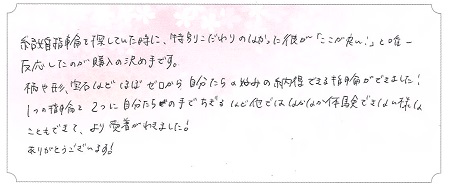 結婚指輪を探していた時に、特別こだわりのなかった彼が「ここが良い!」と唯一
反応したのが購入の決め手です。
柄や形、宝石などほぼゼロから自分たち好みの納得できる指輪ができました!
1つの指輪を2つに自分たちの手でちぎるなど他ではなかなか体験できない様な
こともできて、より愛着がわきました!
ありがとうございます!